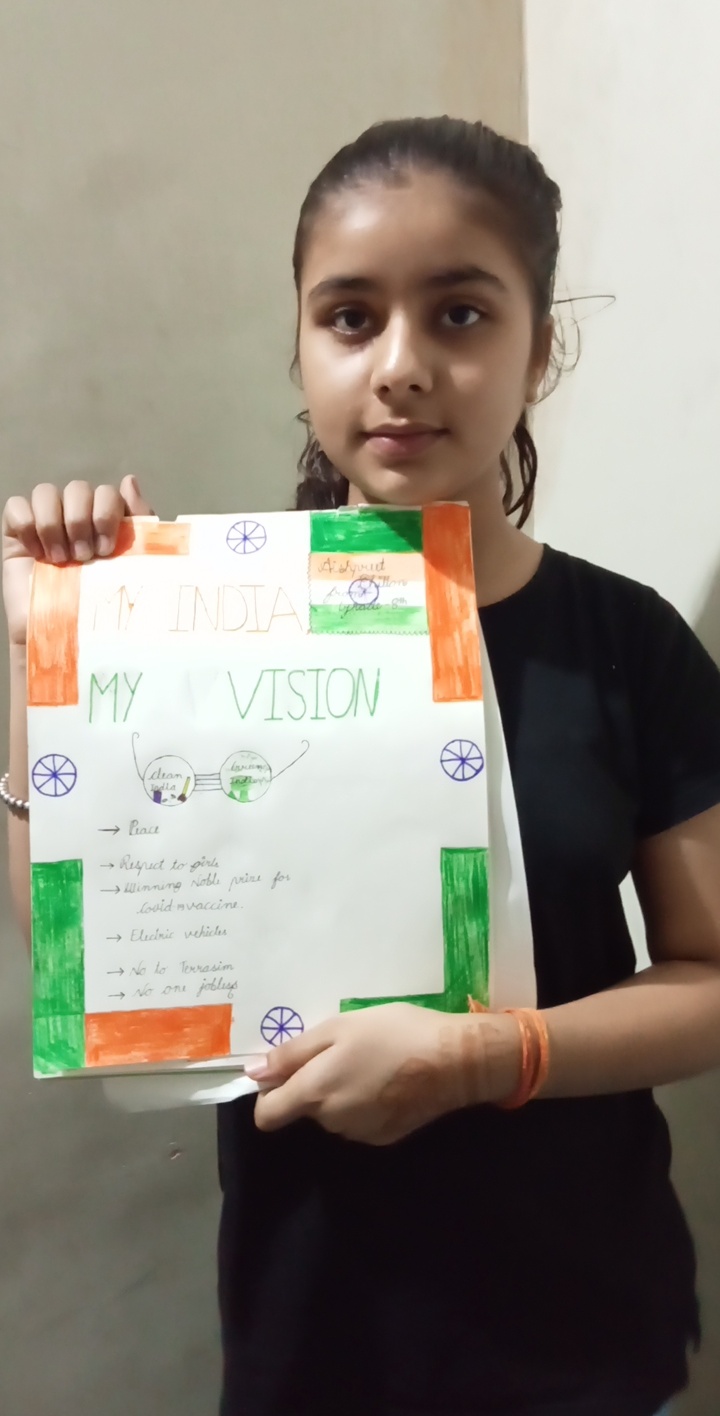 MY INDIA
Dhillon
Grade-8th
MY VISION
clean
India
Green
India
→ Peace
→ Respect to girls
→ Winning Noble prize for
Covid vaccine.
→ Electric vehicles
→ No to Terrasim
→ No one jobless